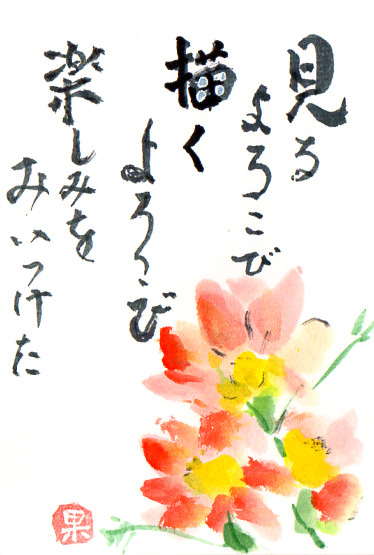 見る
よろこび
描く
よろこび
楽しみを
みいつけた
果